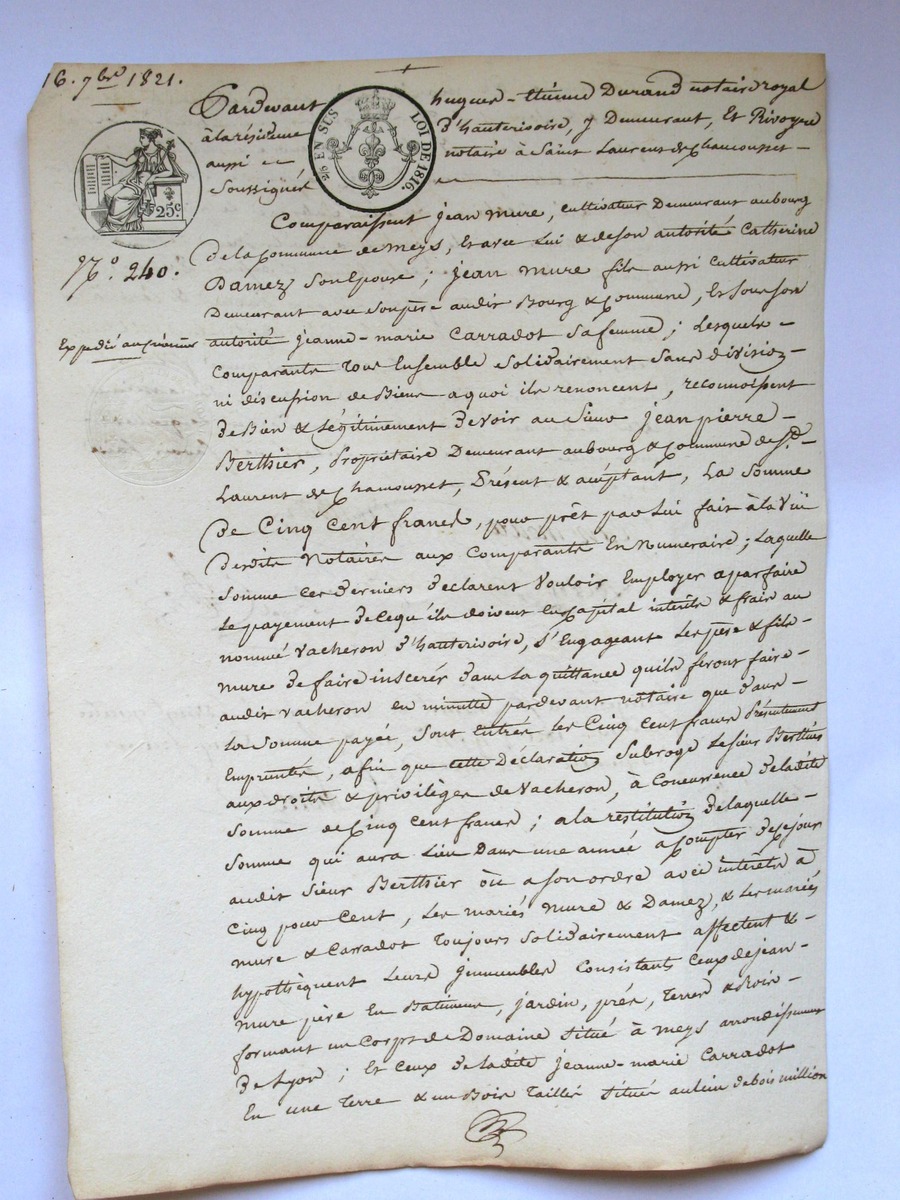 16. 7bre 1821.
Pardevant hugues-Etienne Durand notaire royal
à la résidence d'hauterivoire, y Demeurant, Et Rivoyre
aussi notaire à Saint Laurent de Chamousset
Soussignés
2/10 EN SUS LOI DE 1816.
25c
N°. 240.
Expedié au créancier
Comparaissent jean mure, cultivateur Demeurant au bourg
de la Commune de meys, Et avec Lui & de son autorité Catherine
Damez son Epouse ; jean mure fils aussi cultivateur
Demeurant avec son père audit Bourg & Commune, Et sous son
autorité jeanne-marie Carradot sa femme ; Lesquels
Comparants Tous Ensemble Solidairement Sans division
ni discussion de Biens a quoi ils renoncent, reconnoissent
de Bien & Légitimement devoir au Sieur jean pierre
Berthier, Propriétaire Demeurant au bourg & Commune de St.
Laurent de Chamousset, Présent & acceptant, La Somme
De Cinq Cent francs, pour prêt par Lui fait à la Vüe
desdits Notaires aux Comparants En Numeraire ; Laquelle
Somme ces Derniers déclarent Vouloir Employer a parfaire
Le payement de ce qu'ils doivent En Capital intérêts & frais au
nommé Vacheron d'hauterivoire, s'Engageant Les père & fils
mure de faire inscerér dans La quittance qu'ils feront faire
audit Vacheron en minutte pardevant notaire que dans
La Somme payée, sont Entrés les Cinq Cent francs Présentement
Empruntés, afin que cette Déclaration Subroge Le Sieur Berthier
aux droits & privilèges de Vacheron, à Concurrence de ladite
Somme de Cinq Cent francs ; a la restitution de laquelle
Somme qui aura Lieu Dans une année a Compter de ce jour
audit Sieur Berthier où a son ordre avec intérêts à
Cinq pour Cent, Les mariés mure & Damez, & Les mariés
mure & Carradot Toujours Solidairement affectent &
hypothèquent Leurs jmmeubles Consistants Ceux de jean
mure père En Batiments, jardin, prés, Terres & Bois
formant un Corps de Domaine Situé à meys arrondissement
de Lyon ; Et Ceux de ladite jeanne-marie Carradot
En une Terre & un Bois Taillis Situés au lieu de bois million